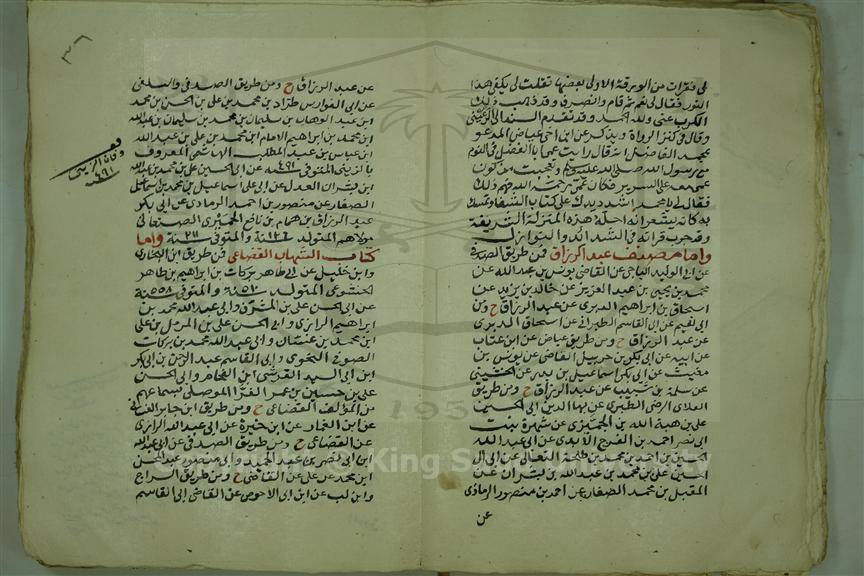 لى فقرات من الورقة الاولى بعضها تقلت لى يكفى هذا
النور فقال لى نعم ثم قام وانصرف وقد ذهب ذلك
الكرب عنى ولله الحمد وقد تقدم السند الى
وقال فى كنز الرواة ويذكر عن ابن اخى عياض المدعو
بمحمد الفاضل انه قال رايت عمى ابا الفضل فى النوم
مع رسول الله صلى الله عليه وسلم وتعجبت من كون
عمى معه على السرير فكان عمى رحمة الله فهم ذلك
فقال لى يا محمد اشدد يدك على كتاب الشفا وتمسك
به كانه يشعر انه احله هذه المنزلة الشريفة
وقد جرب قراته فى الشدائد والنوازل
واما مصنف عبد الرزاق فمن طريق
عن ابى الوليد الباجى عن القاضى يونس بن عبد الله عن
محمد بن يحيى بن عبد العزيز عن خالد بن يزيد عن
اسحاق بن ابراهيم الدبرى عن عبد الرزاق ح ومن
ابى نعيم عن ابى القاسم الطبرانى عن اسحاق الدبرى
عن عبد الرزاق ح ومن طريق عياض عن ابن عتاب
عن ابيه عن ابى بكر بن حوبيل القاضى عن يونس بن
مغيث عن ابى بكر اسماعيل بن بدر عن الخشنى
عن سلمة بن شبيب عن عبد الرزاق ح ومن طريق
العلاى الرضى الطبرى عن بهاء الدين ابى الحسن
على بن هبة الله بن الجميزى عن شهدة بنت
ابى نصر احمد بن الفرج الابرى عن ابى عبد الله
الحسين بن احمد بن محمد بن طلحة النعالى عن
الحسين على بن محمد بن عبد الله بن بشران عن
محمد الصفار عن احمد بن منصور الرمادى
عن
عن عبد الرزاق ح ومن طريق الصدفى والسلفى
عن ابى الفوارس طراد بن محمد بن على بن الحسن بن محمد
ابن عبد الوهاب بن سليمان بن محمد بن سليمان بن عبد الله
ابن محمد بن ابراهيم الامام ابن محمد بن على بن عبد الله
ابن عباس بن عبد المطلب الهاشمى المعروف
بالزينبى المتوفى سنة ٤٩١ عن ابى الحسين على بن محمد بن عبد الله
ابن بشران العدل عن ابى على اسماعيل بن محمد بن اسماعيل
الصفار عن منصور بن احمد الرمادى عن ابى بكر
عبد الرزاق بن همام بن نافع الحميرى الصنعانى
مولاهم المتولد سنة ١٢٦ والمتوفى سنة ٢١١ واما
كتاب الشهاب القضاعى فمن طريق ابن البخارى
وابن خليل عن ابى طاهر بركات بن ابراهيم بن طاهر
الخشوعى المتولد سنة ٥١٠ والمتوفى سنة ٥٥٨
عن ابى الحسن على بن المشرق وابى عبد الله محمد بن
ابراهيم الرازى وابى الحسن على بن المؤمل بن على
ابن محمد بن غسان وابى عبد الله محمد بن بركات
الصوفى النحوى وابى القاسم عبد الرحمن بن ابى بكر
ابن ابى السيد القرشى ابن الفحام وابى الحسن
على بن حسين بن عمر الفرا الموصلى بسماعهم
من المؤلف القضاعى ح ومن طريق ابن جابر
عن ابن الغماز عن ابن خيرة عن ابى عبد الله الرازى
عن القضاعى ح ومن طريق الصدفى عن ابى عبد الله
ابن ابى نصر بن عبد الحميد وابى منصور عبد المحسن
ابن محمد عن على عن القاضى ح ومن طريق السراج
وابن لب عن ابن ابى الاحوص عن القاضى ابى القاسم
وفات الزينبى
سنة ٤٩١
٣٦
King S
195